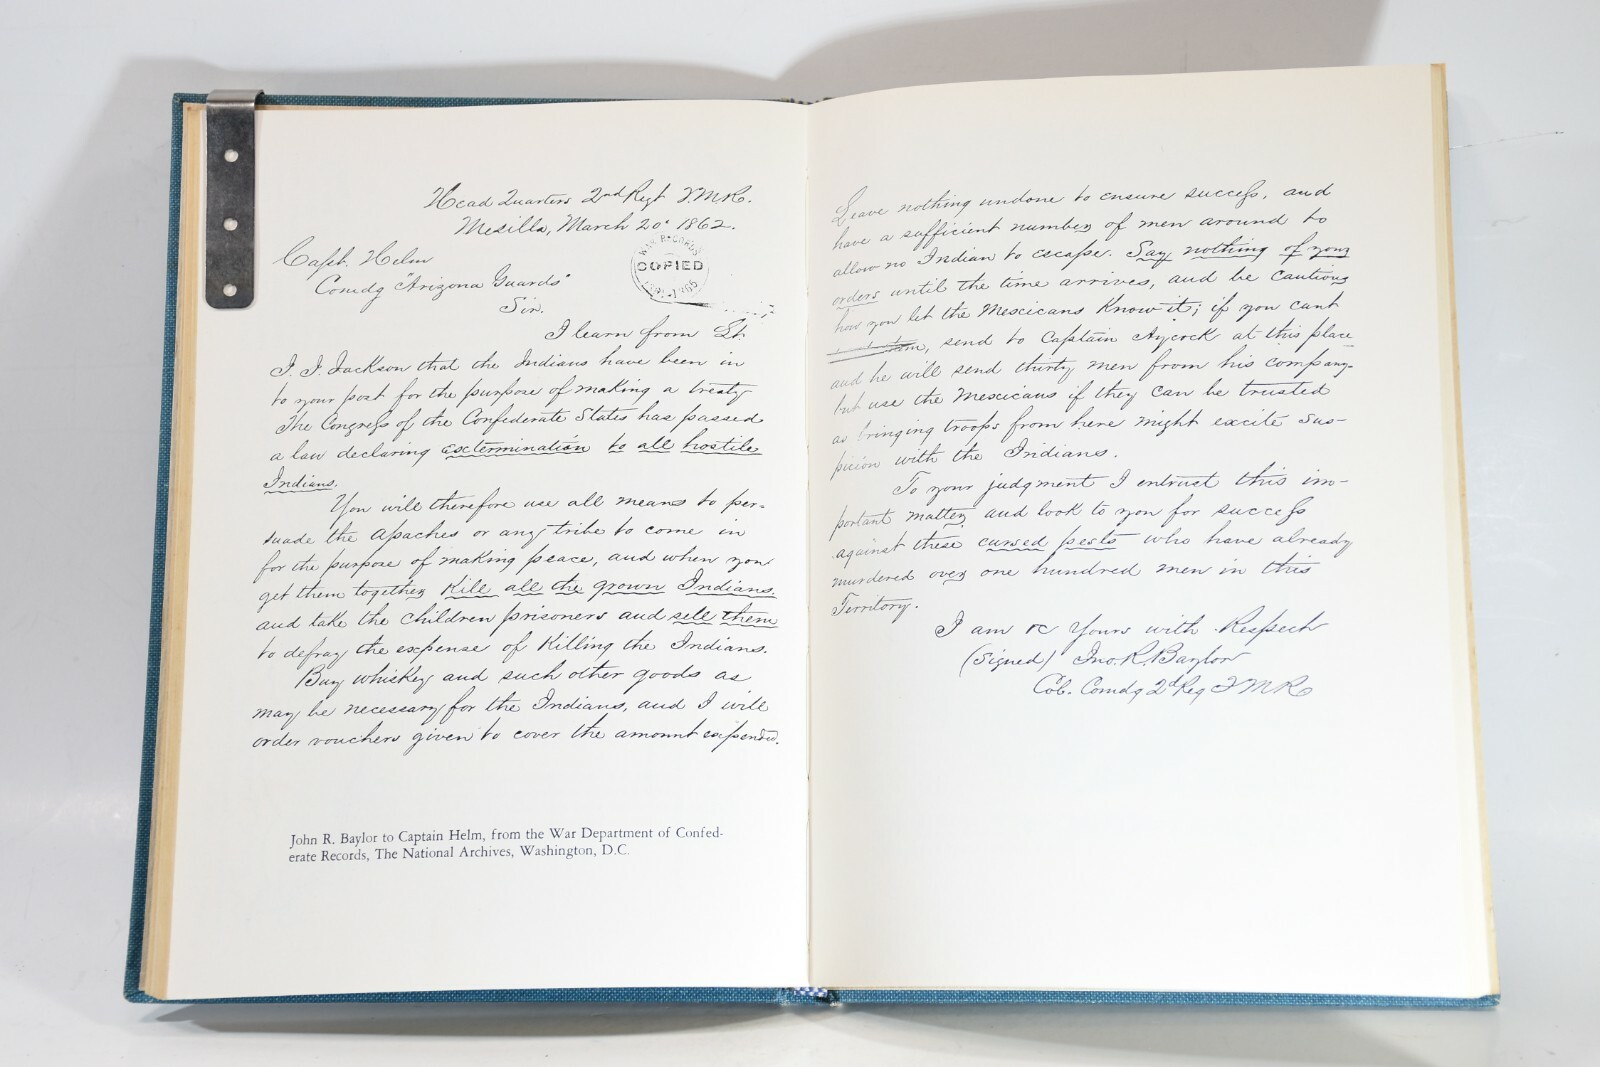 Head Quarters 2nd Regt T.M.R.
Mesilla, March 20" 1862.
WAR RECORDS
COPIED
Capt. Helm
Comdg "Arizona Guards"
Sir.
I learn from Lt.
J. J. Jackson that the Indians have been in
to your post for the purpose of making a treaty
The Congress of the Confederate States has passed
a law declaring extermination to all hostile
Indians.
You will therefore use all means to per-
suade the Apaches or any tribe to come in
for the purpose of making peace, and when you
get them together kill all the grown Indians
and take the children prisoners and sell them
to defray the expense of Killing the Indians.
Buy whiskey and such other goods as
may be necessary for the Indians, and I will
order vouchers given to cover the amount expended.
John R. Baylor to Captain Helm, from the War Department of Confed-
erate Records, The National Archives, Washington, D.C.
Leave nothing undone to ensure success, and
have a sufficient number of men around to
allow no Indian to escape. Say nothing of your
orders until the time arrives, and be cautious
how you let the Mexicans Know it; if you cant
send to Captain Aycock at this place
and he will send thirty men from his company-
but use the Mexicans if they can be trusted
as bringing troops from here might excite sus-
picion with the Indians.
To your judgment I entrust this im-
portant matter and look to you for success
against these cursed pests who have already
murdered over one hundred men in this
Territory.
I am &c Yours with Respect
(Signed) Jno. R. Baylor
Col. Comdg 2d Reg T M R